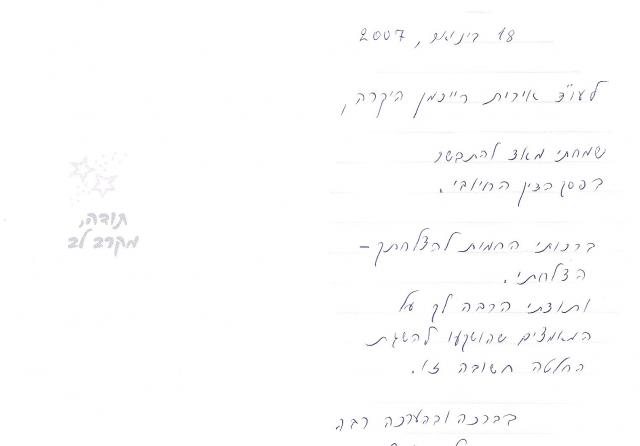 18 בינואר, 2007
לעו"ד אירית רייכמן היקרה,
שמחתי מאד להתבשר
בפסק הדין החיובי.
ברכותי החמות להצלחתך –
הצלחתי.
ותודתי הרבה לך על
המאמצים שהושקעו להשגת
החלטה חשובה זו.
בברכה ובהערכה רבה
תודה,
מקרב לב